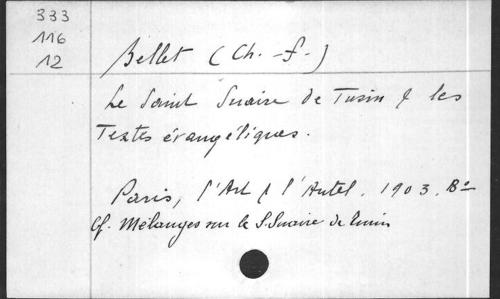 333
116
12
Bellet (Ch.-f.)
Le Saint Suaire de Turin & les
Textes évangéliques.
Paris, l'Art & l'Autel. 1903. 8º
Cf. Mélanges sur le S. Suaire de Turin